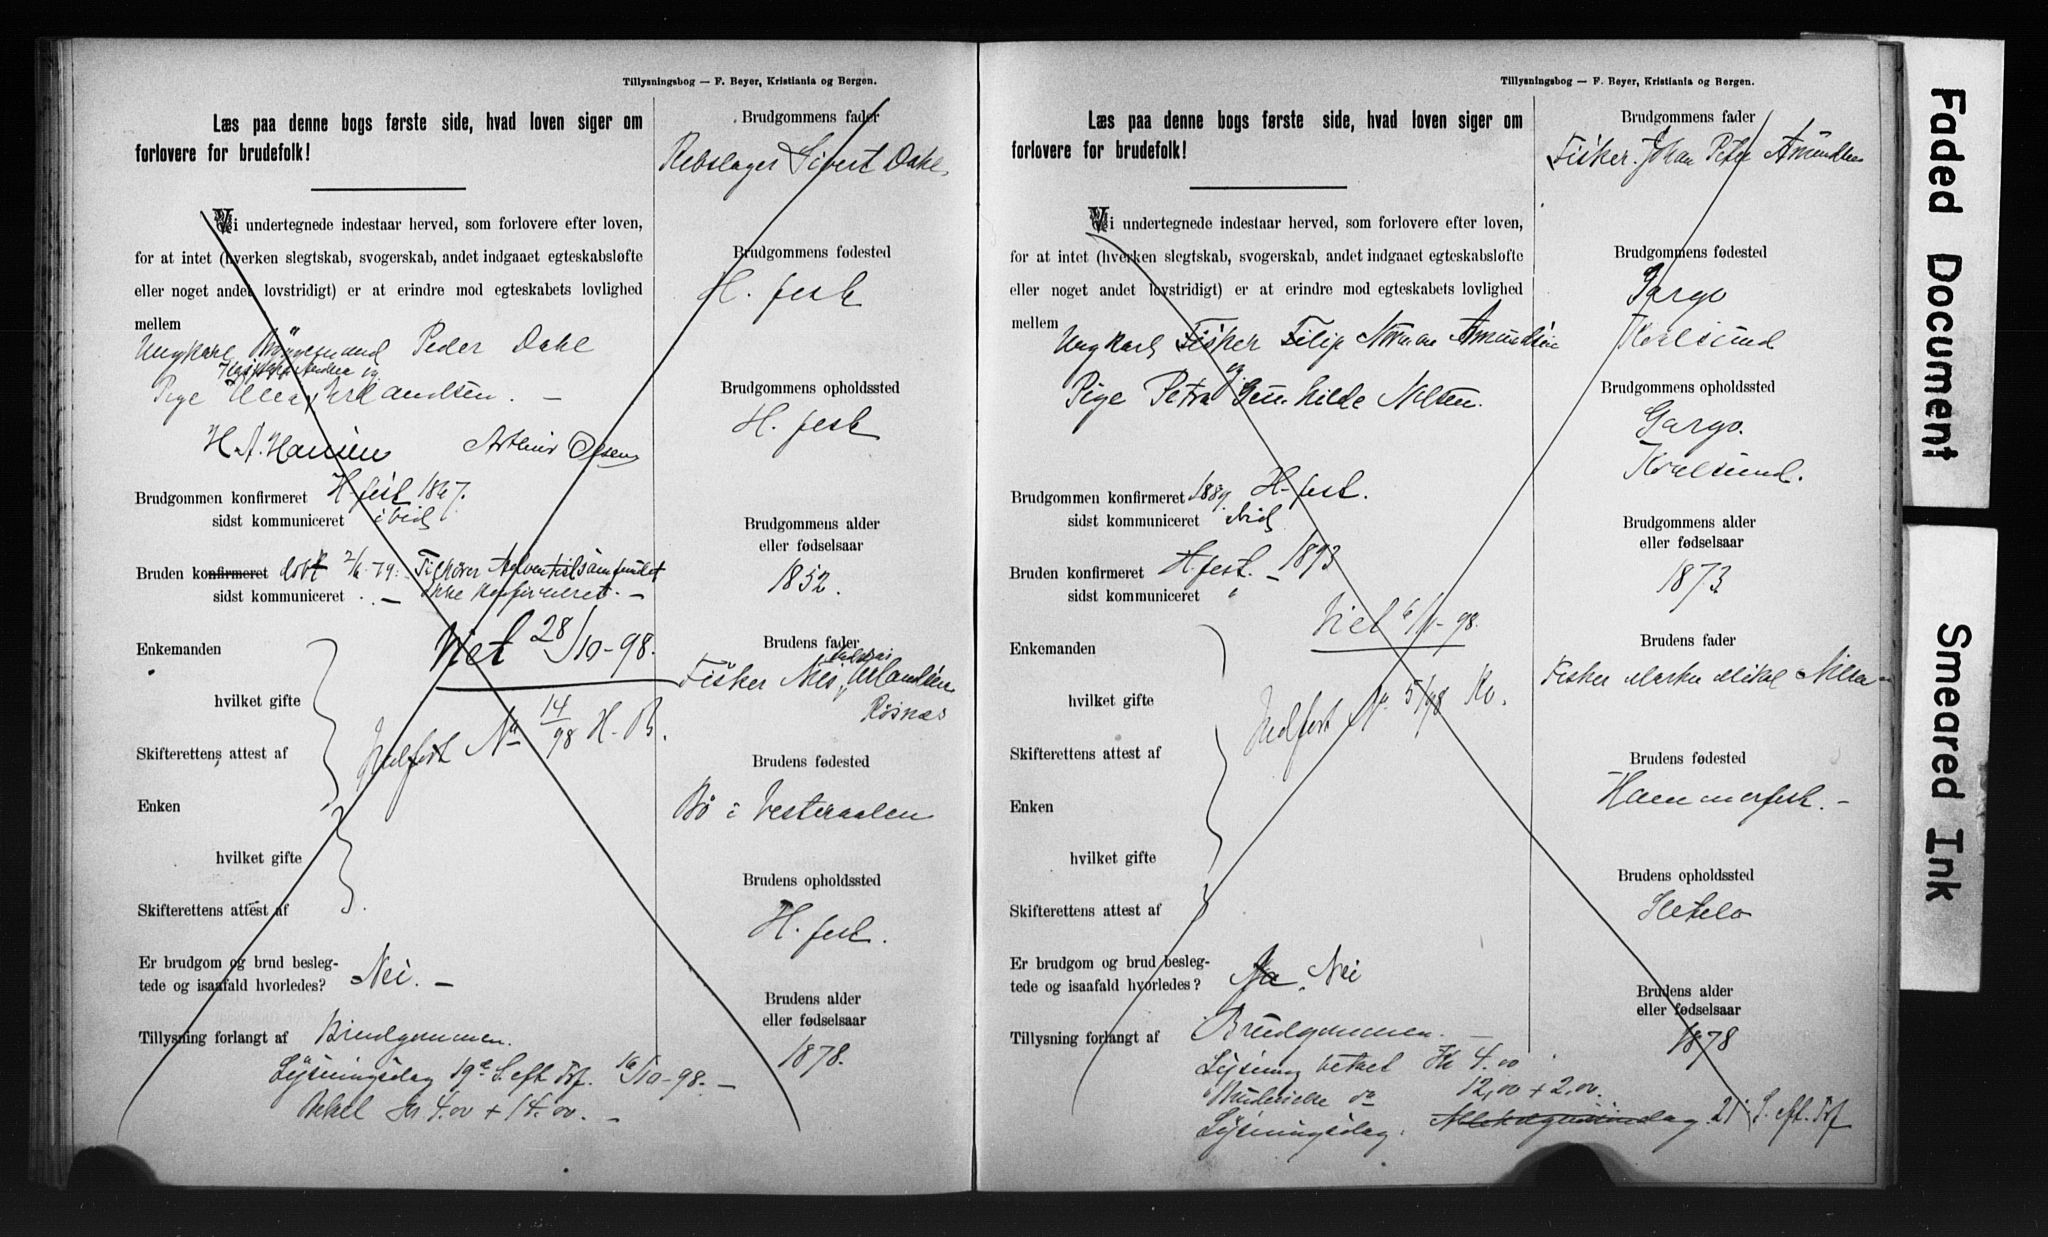 Tillysningsbog — F. Beyer, Kristiania og Bergen.
Læs paa denne bogs første side, hvad loven siger om
forlovere for brudefolk!
Vi undertegnede indestaar herved, som forlovere efter loven,
for at intet (hverken slegtskab, svogerskab, andet indgaaet egteskabsløfte
eller noget andet lovstridigt) er at erindre mod egteskabets lovlighed
mellem
Ungkarl Peder Dahl
Pige
H. A. Hansen Arthur Olsen
Brudgommen konfirmeret H.fest 1867.
sidst kommuniceret ibid
Bruden konfirmeret døbt 2/6 79: Tilhører Adventistsamfundet
sidst kommuniceret " — Ikke konfirmeret. —
Enkemanden
Viet 28/10-98.
hvilket gifte
Indført No 14/98 H. B.
Skifterettens attest af
Enken
hvilket gifte
Skifterettens attest af
Er brudgom og brud besleg-
tede og isaafald hvorledes? Nei. —
Tillysning forlangt af Brudgommen.
Lysningsdag 19de S. eft Trf. 16/10-98. —
Betalt Kr 4.00 + 14.00. —
Brudgommens fader
Rebslager Sivert Dahl.
Brudgommens fødested
H. fest
Brudgommens opholdssted
H. fest
Brudgommens alder
eller fødselsaar
1852.
Brudens fader
Fisker Nils Erlandsen
Brudens fødested
Bø i Vesteraalen
Brudens opholdssted
H. fest.
Brudens alder
eller fødselsaar
1878.
Tillysningsbog — F. Beyer, Kristiania og Bergen.
Læs paa denne bogs første side, hvad loven siger om
forlovere for brudefolk!
Vi undertegnede indestaar herved, som forlovere efter loven,
for at intet (hverken slegtskab, svogerskab, andet indgaaet egteskabsløfte
eller noget andet lovstridigt) er at erindre mod egteskabets lovlighed
mellem
Ungkarl Fisker Filip Norman Amundsen
og
Pige Petra Gunhilde Nilsen.
Brudgommen konfirmeret 1889. H.fest.
sidst kommuniceret ibid
Bruden konfirmeret H.fest. — 1893
sidst kommuniceret "
Enkemanden
Viet 6/11-98.
hvilket gifte
Indført No 5/98 Kv.
Skifterettens attest af
Enken
hvilket gifte
Skifterettens attest af
Er brudgom og brud besleg-
tede og isaafald hvorledes? Nei
Tillysning forlangt af Brudgommen. —
Lysning betalt Kr 4.00
Do 12,00 + 2,00.
Lysningsdag. 21 S. eft. Trf
Brudgommens fader
Fisker Johan Peter Amundsen
Brudgommens fødested
Gargo
Kvalsund
Brudgommens opholdssted
Gargo.
Kvalsund.
Brudgommens alder
eller fødselsaar
1873.
Brudens fader
Fisker Mikal Nilsen
Brudens fødested
Hammerfest. —
Brudens opholdssted
Brudens alder
eller fødselsaar
1878
Faded Document
Smeared Ink